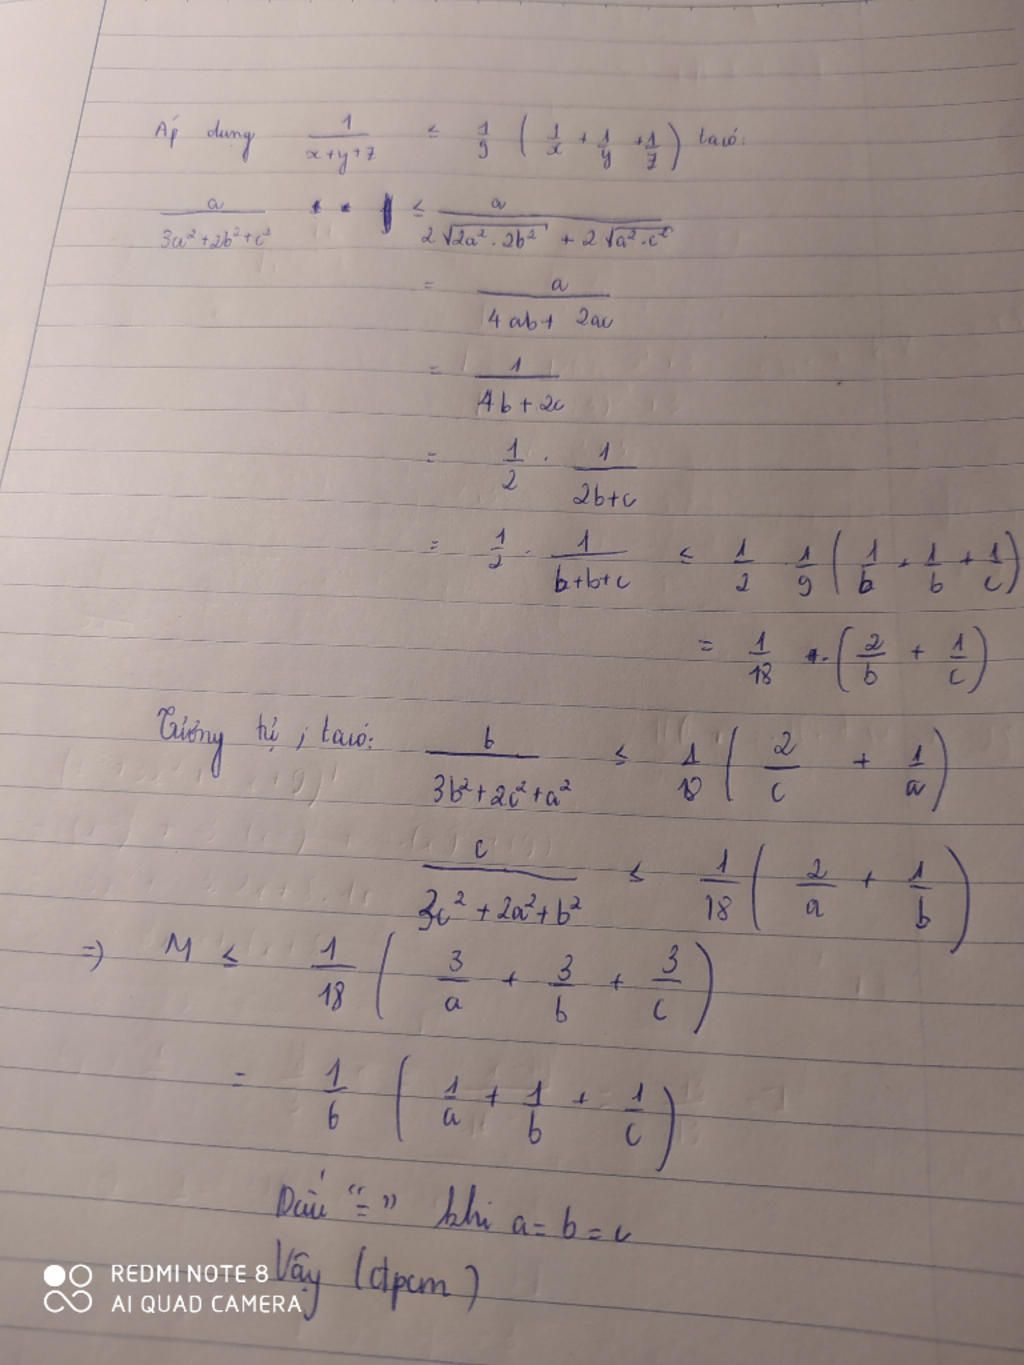 Áp dụng 1/(x+y+z) ≤ 1/9 (1/x + 1/y + 1/z) ta có:
a/(3a²+2b²+c²) ≤ a/(2√(2a².2b²) + 2√(a².c²))
= a/(4ab + 2ac)
= 1/(4b+2c)
= 1/2 . 1/(2b+c)
= 1/2 . 1/(b+b+c) ≤ 1/2 . 1/9 (1/b + 1/b + 1/c)
= 1/18 . (2/b + 1/c)
Tương tự, ta có: b/(3b²+2c²+a²) ≤ 1/18 (2/c + 1/a)
c/(3c²+2a²+b²) ≤ 1/18 (2/a + 1/b)
=) M ≤ 1/18 (3/a + 3/b + 3/c)
= 1/6 (1/a + 1/b + 1/c)
Dấu “=” khi a = b = c
Vậy (đpcm)
REDMI NOTE 8
AI QUAD CAMERA